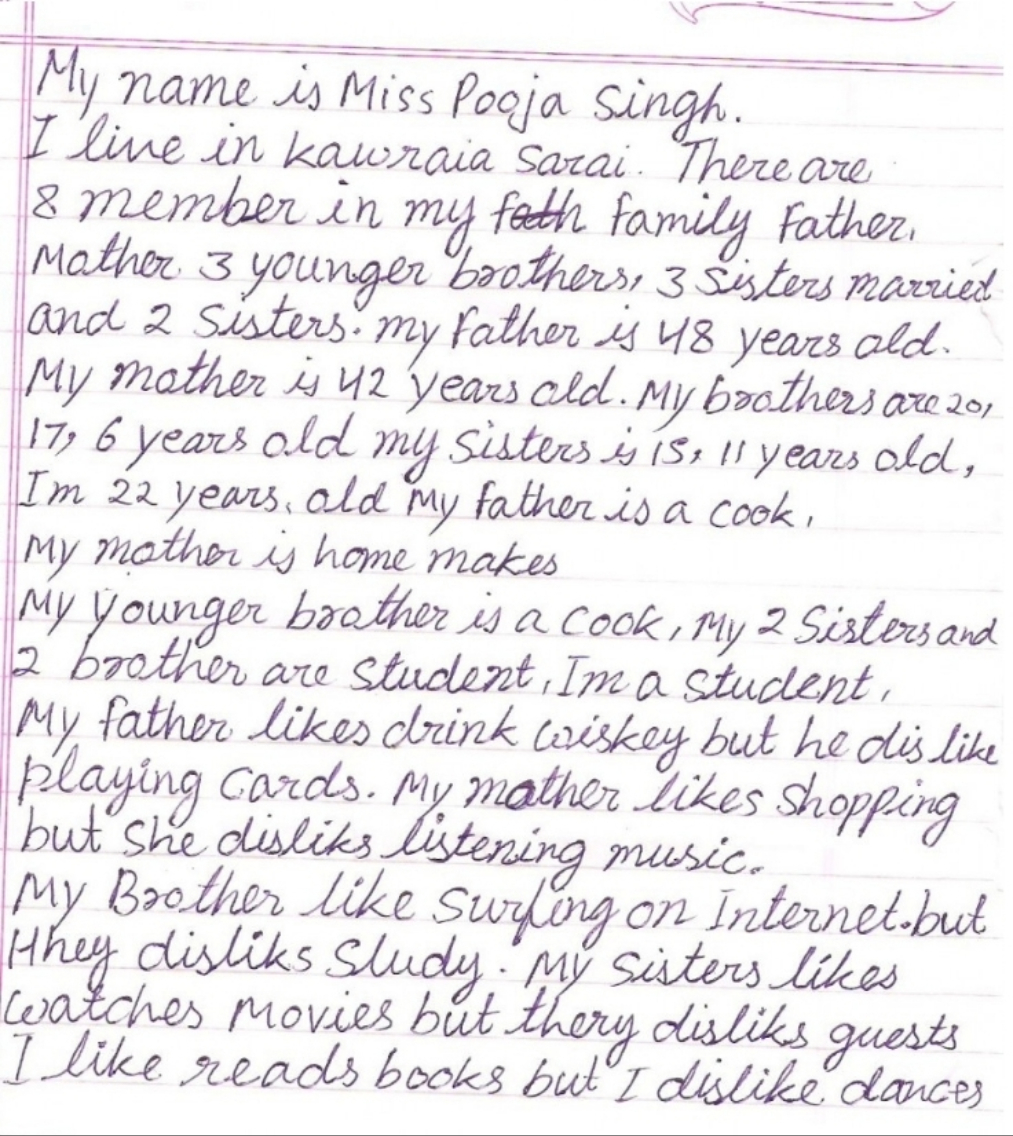 My name is Miss Pooja Singh.
I live in Kawraia Sarai. There are
8 member in my fath family Father,
Mother 3 younger brothers, 3 Sisters married
and 2 Sisters. my Father is 48 years old.
My mother is 42 years old. My brothers are 20,
17, 6 years old my Sisters is 15, 11 years old,
Im 22 years. old My father is a cook,
My mother is home makes
My younger brother is a cook, My 2 Sisters and
2 brother are student, Im a student,
My father likes drink wiskey but he dislike
playing cards. My mother likes shopping
but she disliks listening music.
My Brother like Surfing on Internet. but
Hhey disliks Sludy. My Sisters likes
watches Movies but thery disliks guests
I like reads books but I dislike dances